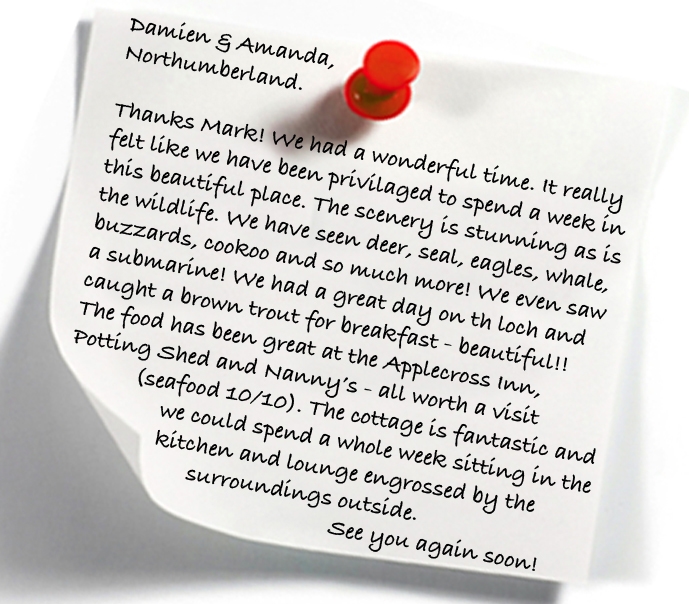 Damien & Amanda,
Northumberland.
Thanks Mark! We had a wonderful time. It really
felt like we have been privilaged to spend a week in
this beautiful place. The scenery is stunning as is
the wildlife. We have seen deer, seal, eagles, whale,
buzzards, cookoo and so much more! We even saw
a submarine! We had a great day on th loch and
caught a brown trout for breakfast - beautiful!!
The food has been great at the Applecross Inn,
Potting Shed and Nanny's - all worth a visit
(seafood 10/10). The cottage is fantastic and
we could spend a whole week sitting in the
kitchen and lounge engrossed by the
surroundings outside.
See you again soon!